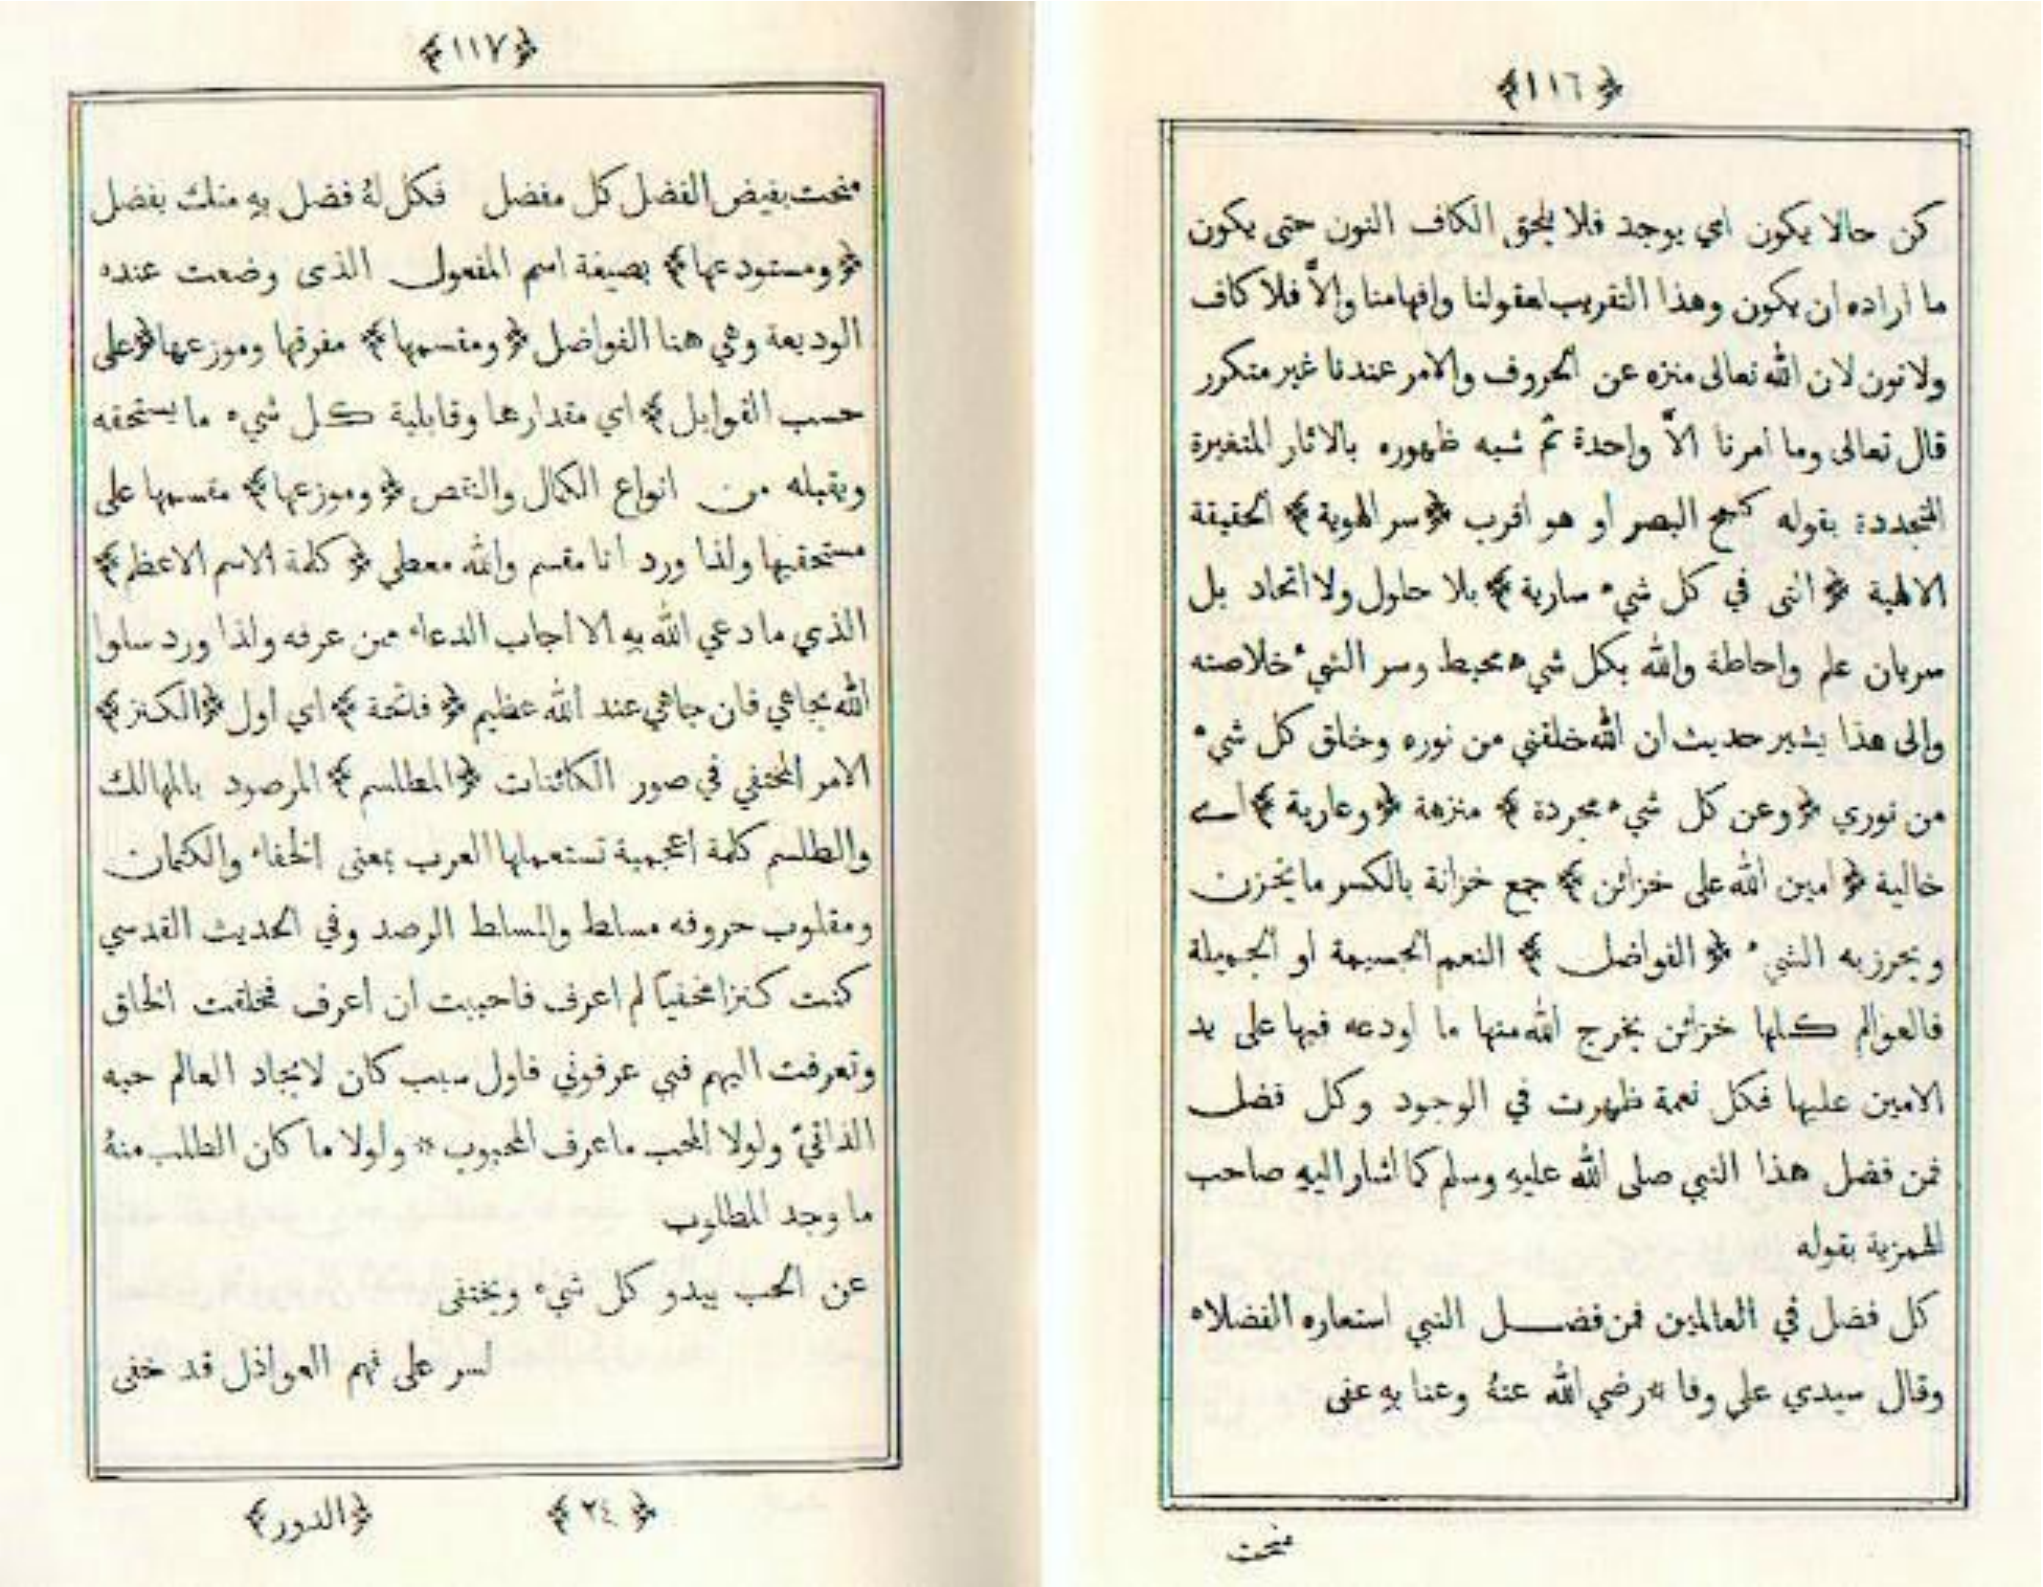 ﴿١١٦﴾
كن حالا يكون اي يوجد فلا يلحق الكاف النون حتى يكون
ما اراده ان يكون وهذا التقريب لعقولنا وافهامنا والاّ فلا كاف
ولا نون لان الله تعالى منزه عن الحروف والامر عندنا غير متكرر
قال تعالى وما امرنا الاّ واحدة ثم شبه ظهوره بالاثار المتغيرة
المتجددة بقوله كلمح البصر او هو اقرب ﴿سر الهوية﴾ الحقيقة
الالهية ﴿التى في كل شيء سارية﴾ بلا حلول ولا اتحاد بل
سريان علم واحاطة والله بكل شيء محيط وسر الشيء خلاصته
والى هذا يشير حديث ان الله خلقني من نوره وخلق كل شيء
من نوري ﴿وعن كل شيء مجردة﴾ منزهة ﴿وعارية﴾ اي
خالية ﴿امين الله على خزائن﴾ جمع خزانة بالكسر ما يخزن
ويحرز به الشيء ﴿الفواضل﴾ النعم الجسيمة او الجميلة
فالعوالم كلها خزائن يخرج الله منها ما اودعه فيها على يد
الامين عليها فكل نعمة ظهرت في الوجود وكل فضل
فمن فضل هذا النبي صلى الله عليه وسلم كما اشار اليه صاحب
الهمزية بقوله
كل فضل في العالمين فمن فضل النبي استعاره الفضلاء
وقال سيدي علي وفا * رضي الله عنهُ وعنا به عنى
منحت
﴿١١٧﴾
منحت بفيض الفضل كل مفضل فكل لهُ فضل بهِ منك بفضل
﴿ومستودعها﴾ بصيغة اسم المفعول الذى وضعت عنده
الوديعة وهي هنا الفواضل ﴿ومقسمها﴾ مفرقها وموزعها ﴿على
حسب القوابل﴾ اي مقدارها وقابلية كل شيء ما يستحقه
ويقبله من انواع الكمال والنقص ﴿وموزعها﴾ مقسمها على
مستحقيها ولذا ورد انا مقسم والله معطي ﴿كلمة الاسم الاعظم﴾
الذي ما دعي الله بهِ الا اجاب الدعاء ممن عرفه ولذا ورد سلوا
الله بجاهي فان جاهي عند الله عظيم ﴿فاتحة﴾ اي اول ﴿الكنز﴾
الامر المختفي في صور الكائنات ﴿المطلسم﴾ المرصود بالمهالك
والطلسم كلمة اعجمية تستعملها العرب بمعنى الخفاء والكتمان
ومقلوب حروفه مسلط والمسلط الرصد وفي الحديث القدسي
كنت كنزا مخفياً لم اعرف فاحببت ان اعرف فخلقت الخلق
وتعرفت اليهم فبي عرفوني فاول سبب كان لايجاد العالم حبه
الذاتيّ ولولا المحب ما عرف المحبوب * ولولا ما كان الطلب منهُ
ما وجد المطلوب
عن الحب يبدو كل شيء ويختفى
لسر على فهم العواذل قد خفى
﴿٢٤﴾ ﴿الدور﴾